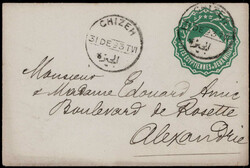 GHIZEH
31 DE 93 T VI
الجيزة
Monsieur
& Madame Edouard Amic
Boulevard de Rosette
Alexandrie